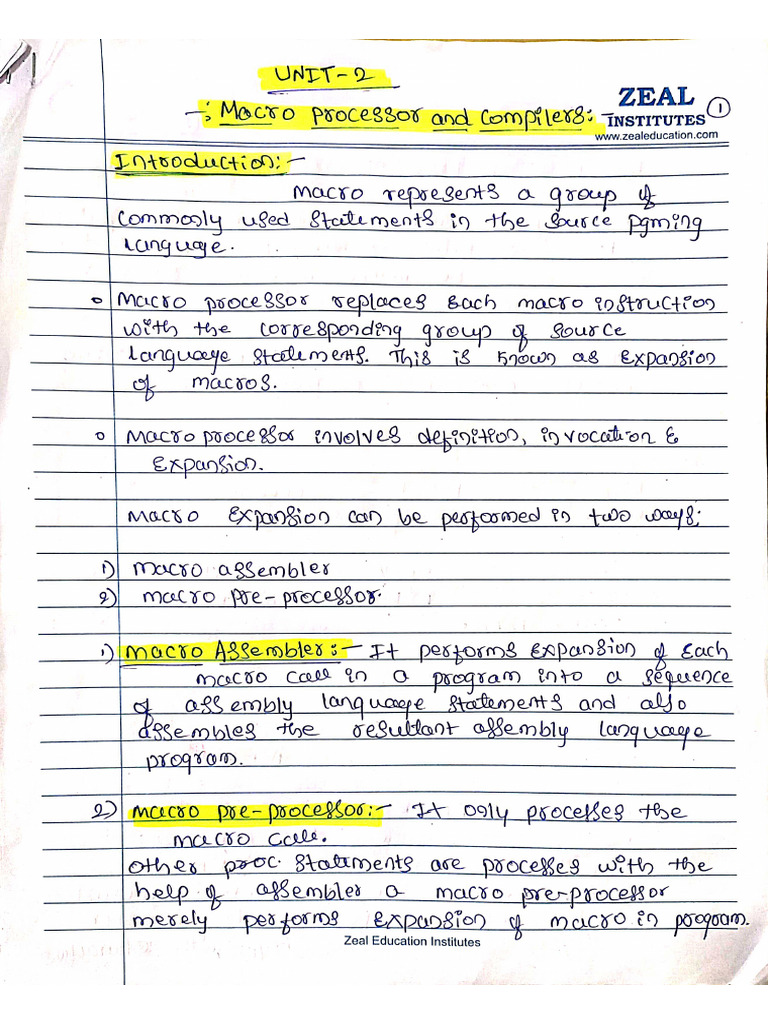 UNIT-2
-: Macro processor and compilers:-
ZEAL
INSTITUTES
1
www.zealeducation.com
Introduction:-
Macro represents a group of
commonly used statements in the source pgming
language.
o Macro processor replaces each macro instruction
with the corresponding group of source
language statements. This is known as expansion
of macros.
o Macro processor involves definition, invocation &
expansion.
Macro expansion can be performed in two ways:
1) macro assembler
2) macro pre-processor.
1) Macro Assembler:- It performs expansion of each
macro call in a program into a sequence
of assembly language statements and also
assembles the resultant assembly language
program.
2) macro pre-processor:- It only processes the
macro call.
other proc. statements are processes with the
help of assembler a macro pre-processor
merely performs expansion of macro in program.
Zeal Education Institutes